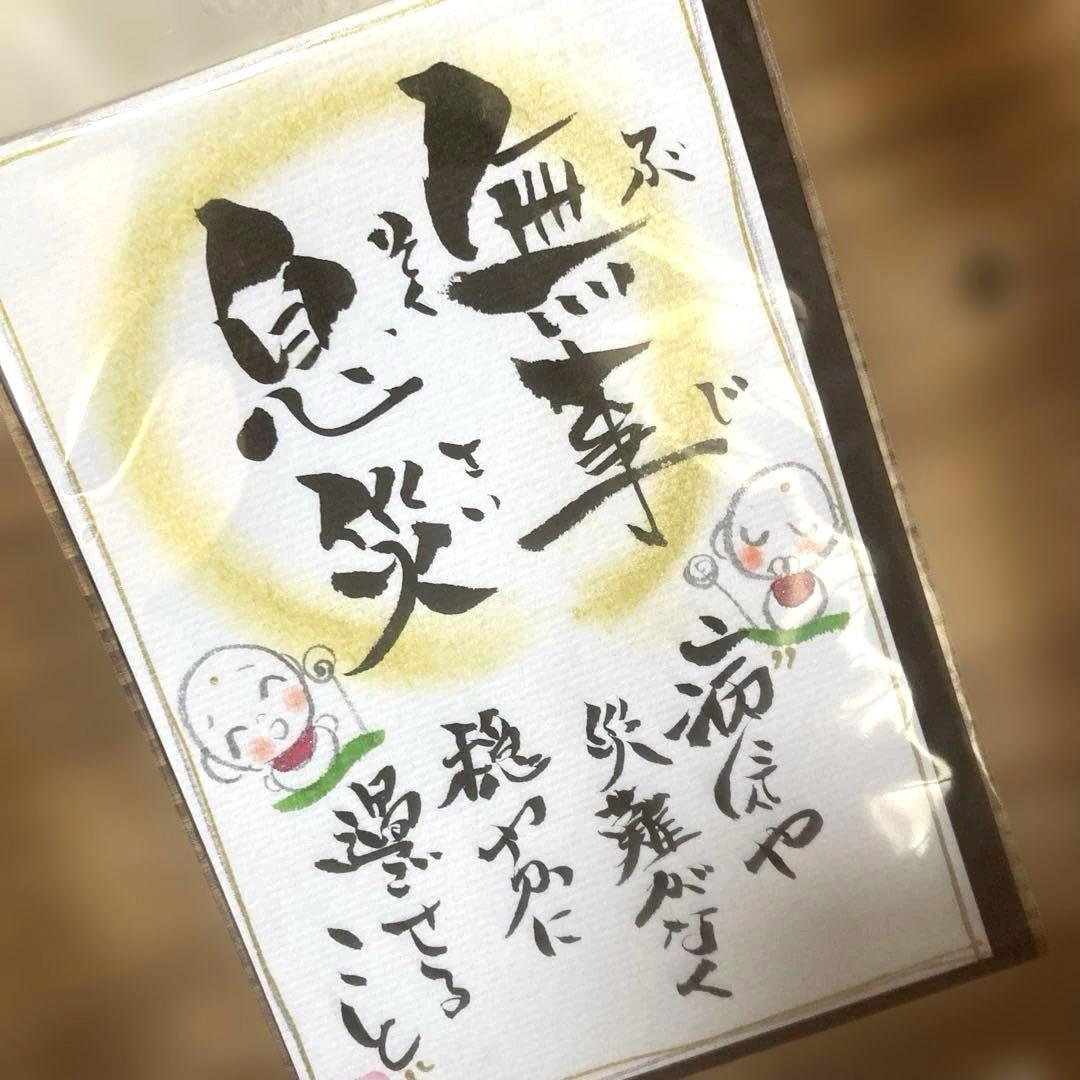 無事
ぶじ
息災
そくさい
〝病気や
災難がなく
穏やかに
過ごせる
こと〟